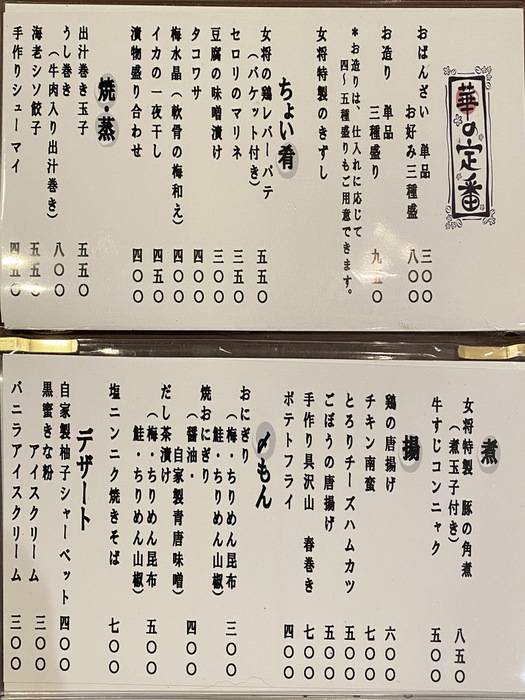 華の定番
おばんざい 単品 三〇〇
お好み三種盛 八〇〇
お造り 単品
三種盛り 九五〇
*お造りは、仕入れに応じて
四〜五種盛りもご用意できます。
女将特製のきずし
ちょい肴
女将の鶏レバーパテ 五五〇
（バケット付き）
セロリのマリネ 三五〇
豆腐の味噌漬け 三〇〇
タコワサ 四〇〇
梅水晶（軟骨の梅和え） 四〇〇
イカの一夜干し 四五〇
漬物盛り合わせ 四〇〇
焼・蒸
出汁巻き玉子 五五〇
うし巻き 八〇〇
（牛肉入り出汁巻き）
海老シソ餃子 五五〇
手作りシューマイ 四五〇
煮
女将特製 豚の角煮 八五〇
（煮玉子付き）
牛すじコンニャク 五〇〇
揚
鶏の唐揚げ 六〇〇
チキン南蛮 七〇〇
とろりチーズハムカツ 五五〇
ごぼうの唐揚げ 五〇〇
手作り具沢山 春巻き 七〇〇
ポテトフライ 四〇〇
〆もん
おにぎり 三〇〇
（梅・ちりめん昆布
鮭・ちりめん山椒）
焼おにぎり 四〇〇
（醤油・自家製青唐味噌）
だし茶漬け 五〇〇
（梅・ちりめん昆布
鮭・ちりめん山椒）
塩ニンニク焼きそば 七〇〇
デザート
自家製柚子シャーベット 四〇〇
黒蜜きな粉
アイスクリーム 三〇〇
バニラアイスクリーム 三〇〇